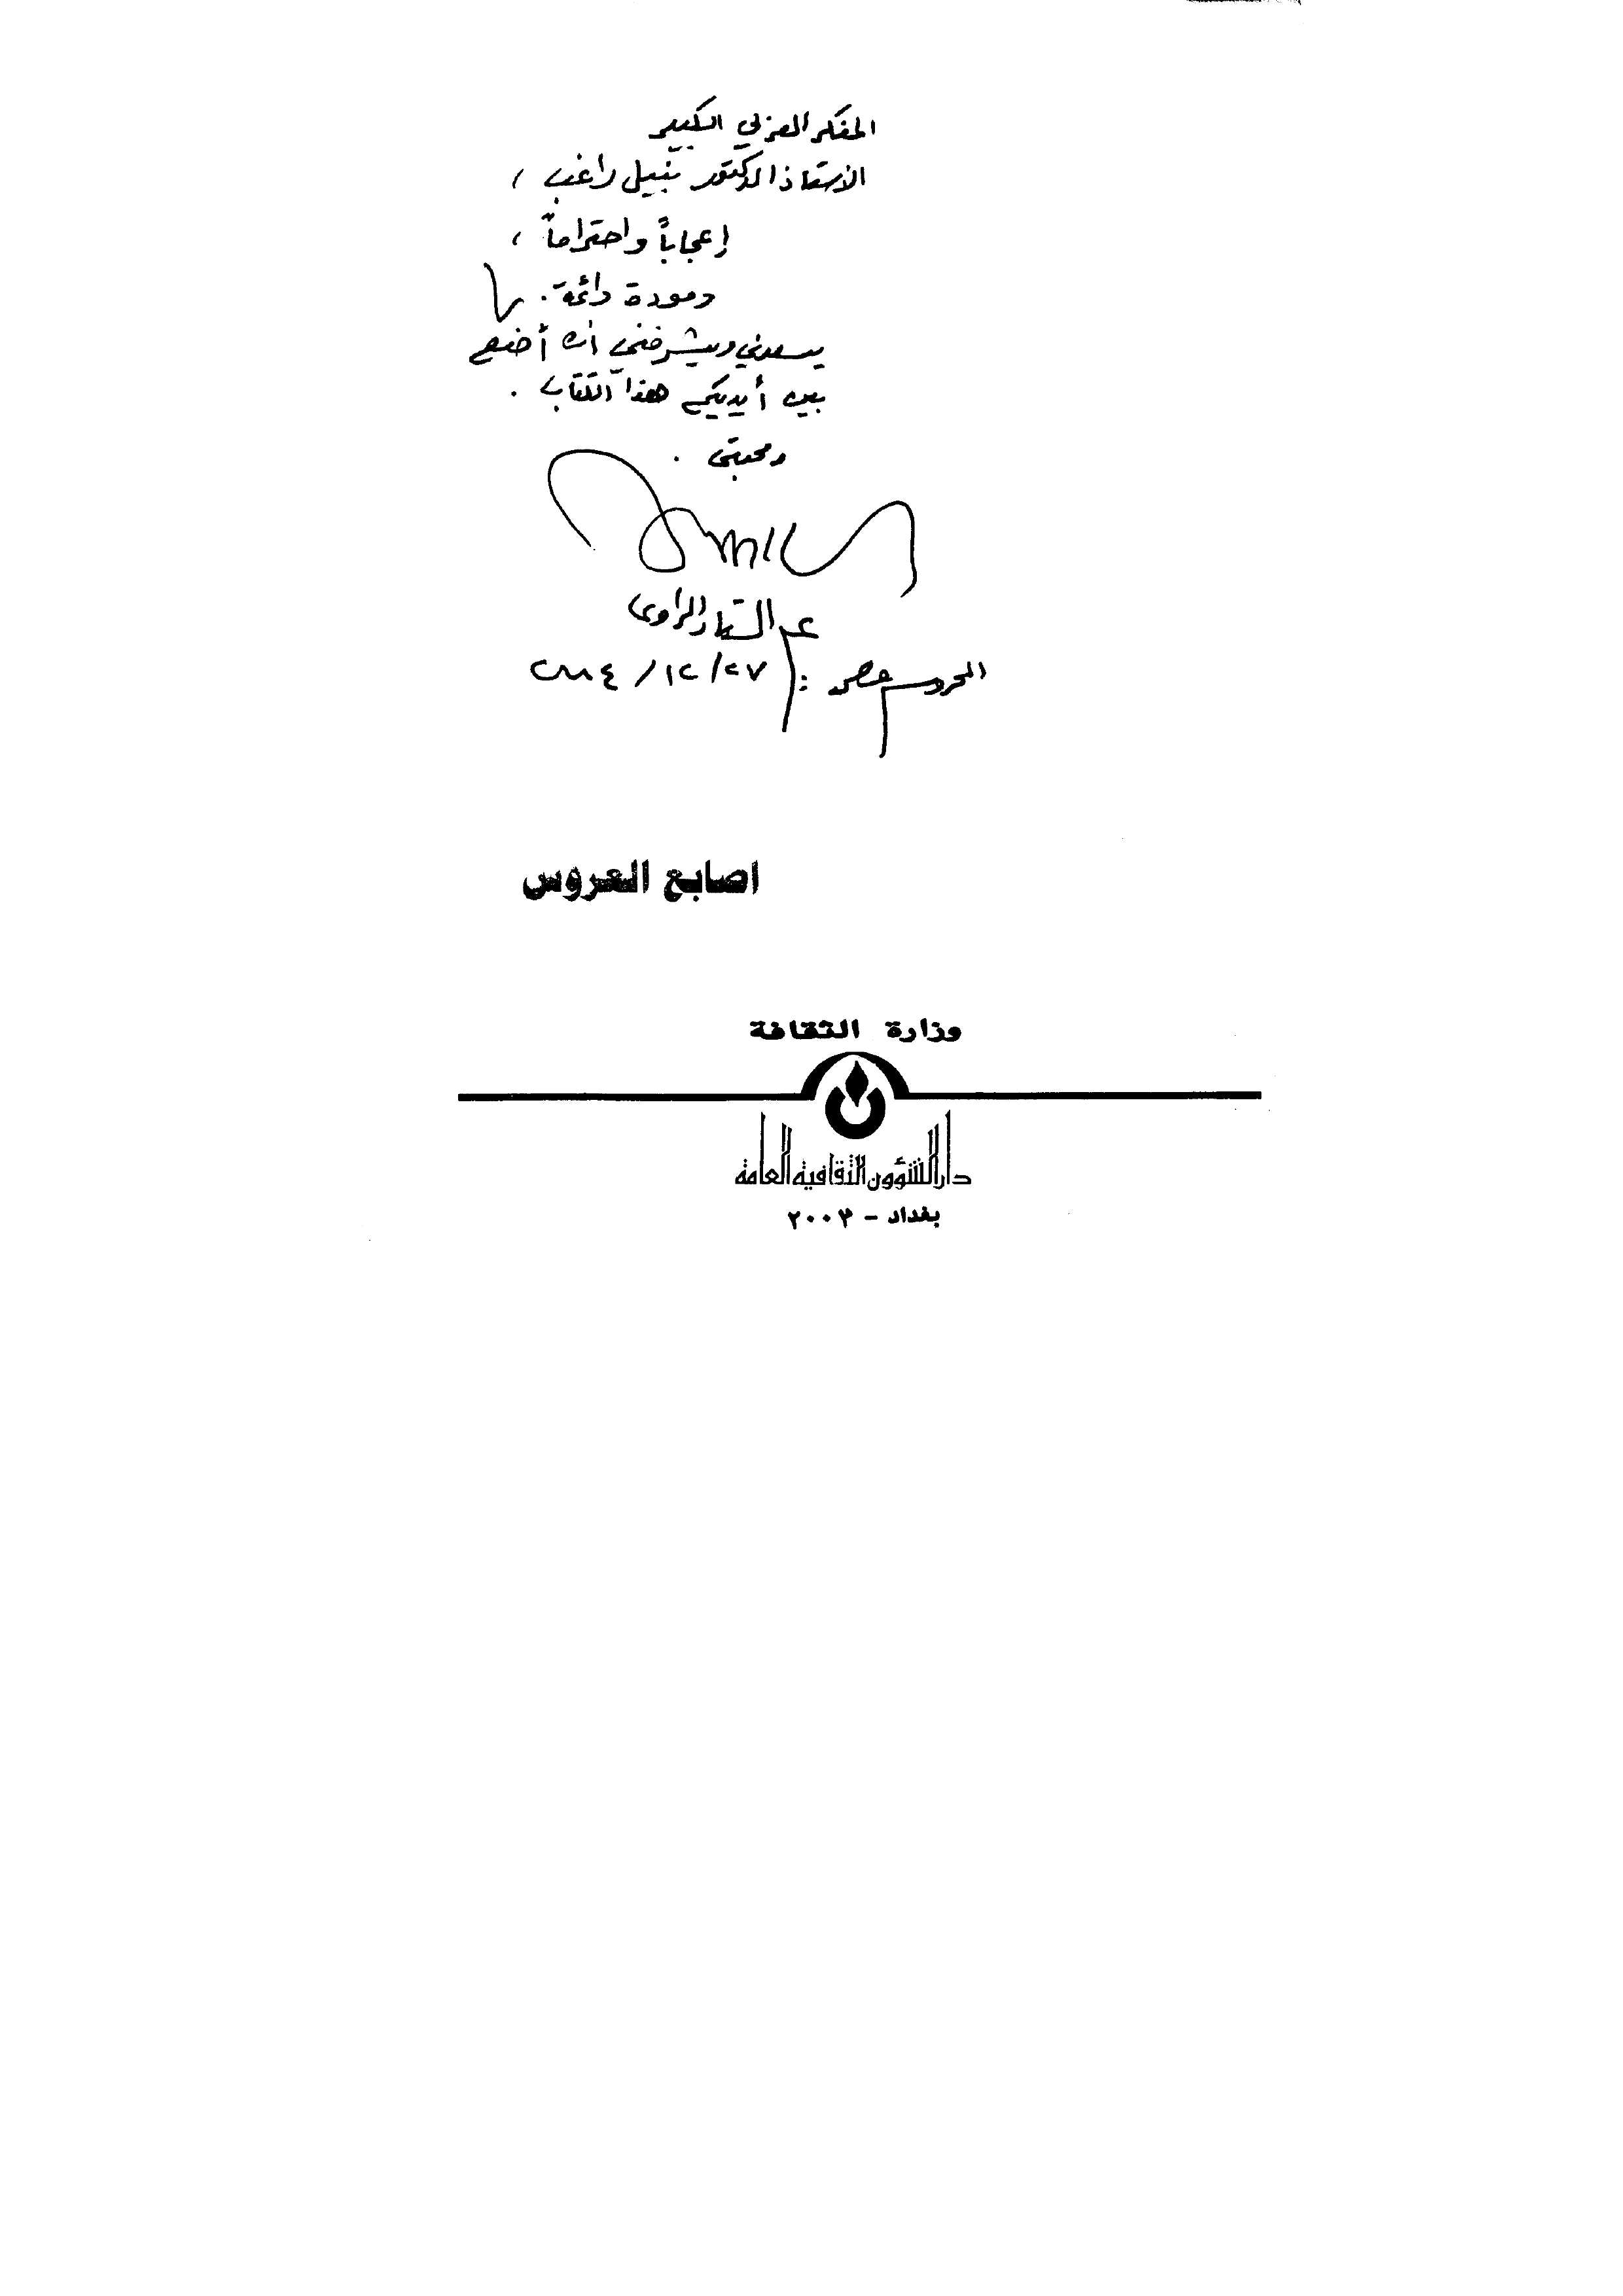 المفكر العربي الكبير
الأستاذ الدكتور نبيل راغب ،
إعجاباً واحتراماً ،
ومودة دائمة .
يسعدني ويشرفني أن أضع
بين أيديكم هذا الكتاب .
ومحبتي .
عبد الستار الراوي
مصر : ٢٧ / ١٢ / ٢٠٠٤
اصابع العروس
وزارة الثقافة
دار الشؤون الثقافية العامة
بغداد - ٢٠٠٣